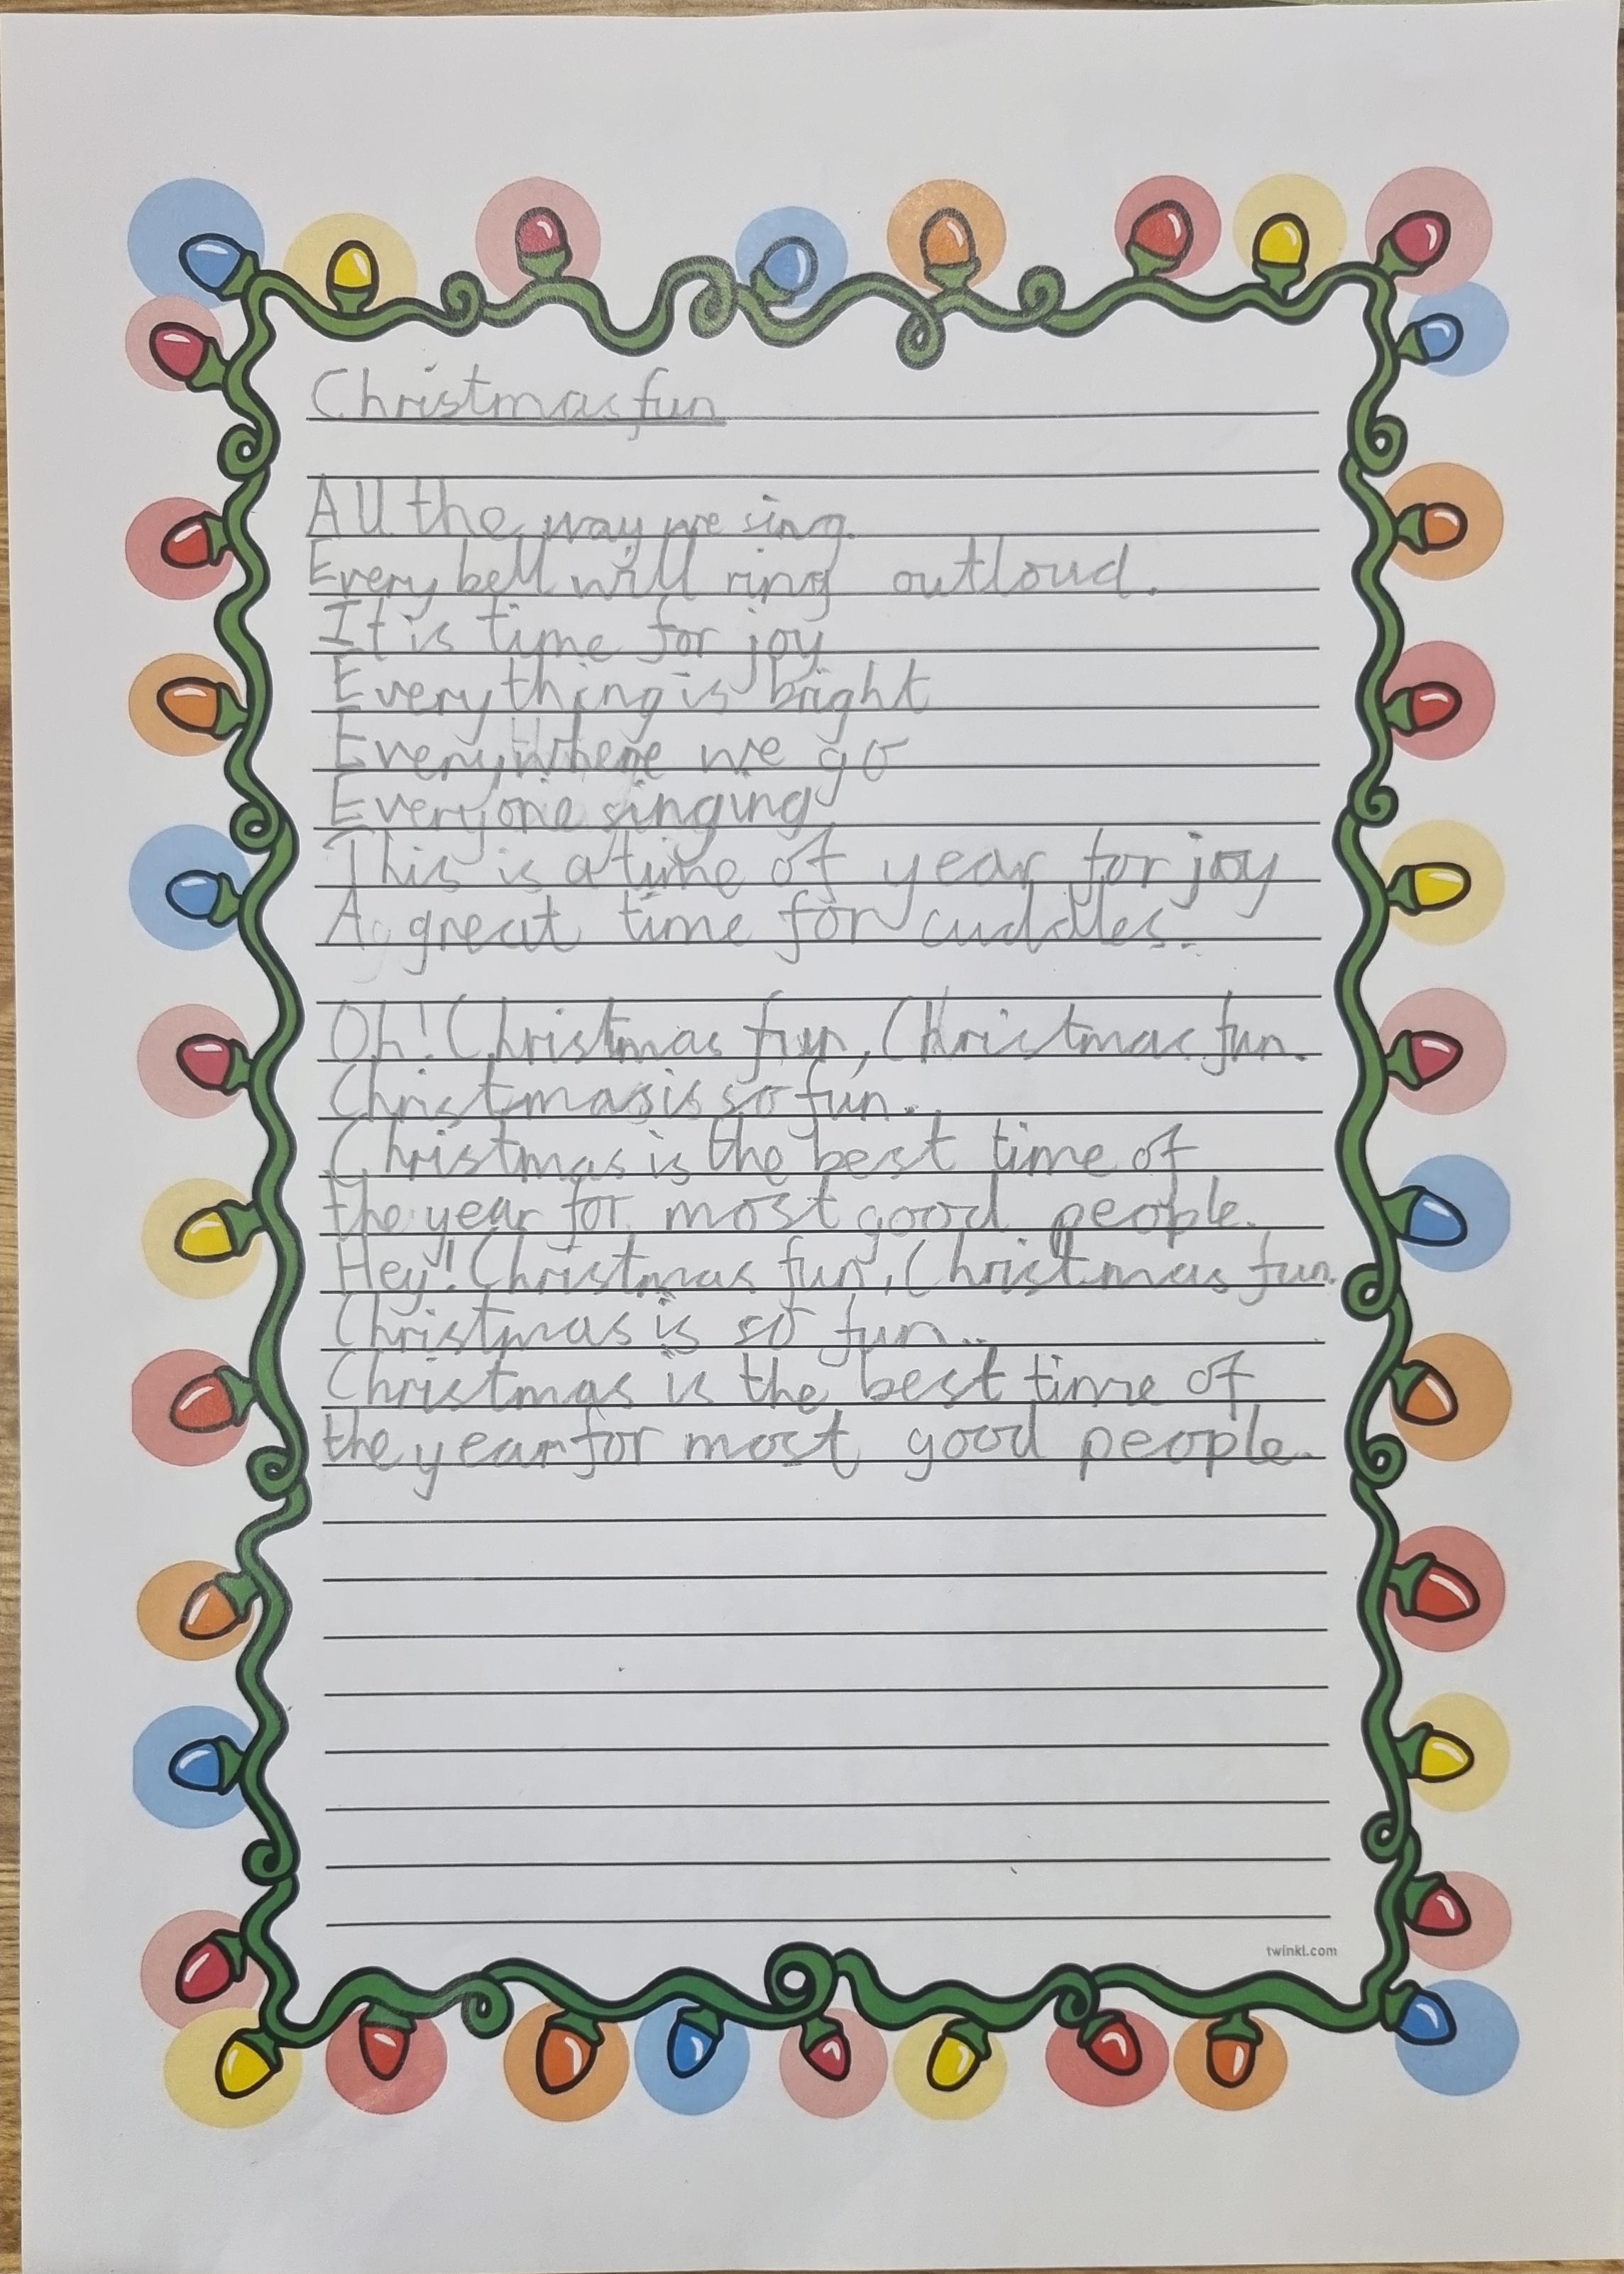 Christmas fun
All the way we sing.
Every bell will ring outloud.
It is time for joy
Everything is bright
Everywhere we go
Everyone singing
This is a time of year for joy
A great time for cuddles.
Oh! Christmas fun, Christmas fun.
Christmas is so fun.
Christmas is the best time of
the year for most good people.
Hey! Christmas fun, Christmas fun.
Christmas is so fun..
Christmas is the best time of
the year for most good people.
twinkl.com